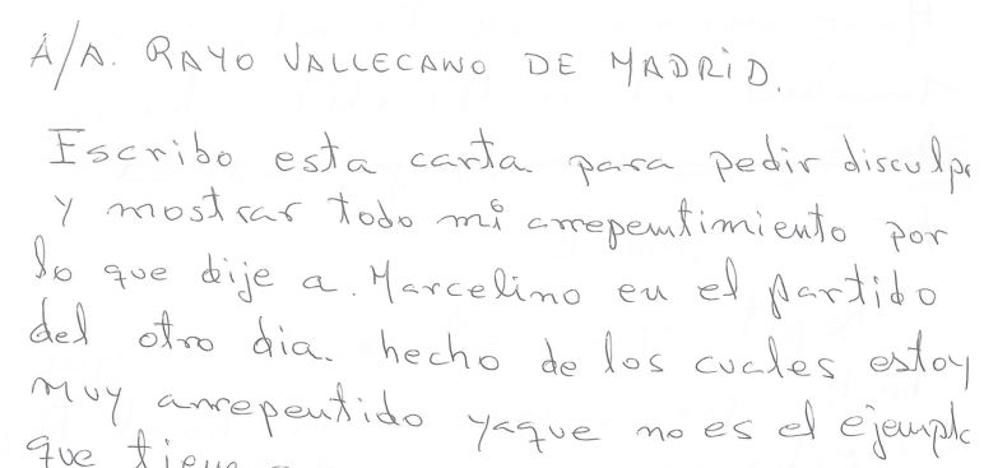 A/A. RAYO VALLECANO DE MADRID.
Escribo esta carta para pedir disculpa
y mostrar todo mi arrepentimiento por
lo que dije a. Marcelino en el partido
del otro dia. hecho de los cuales estoy
muy arrepentido yaque no es el ejemplo
que tiene